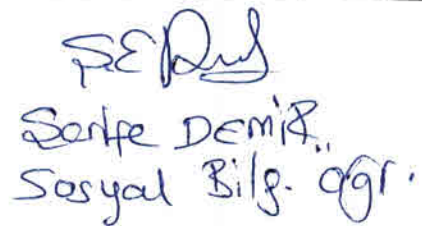 Şerife DEMİR
Sosyal Bilg. Öğr.